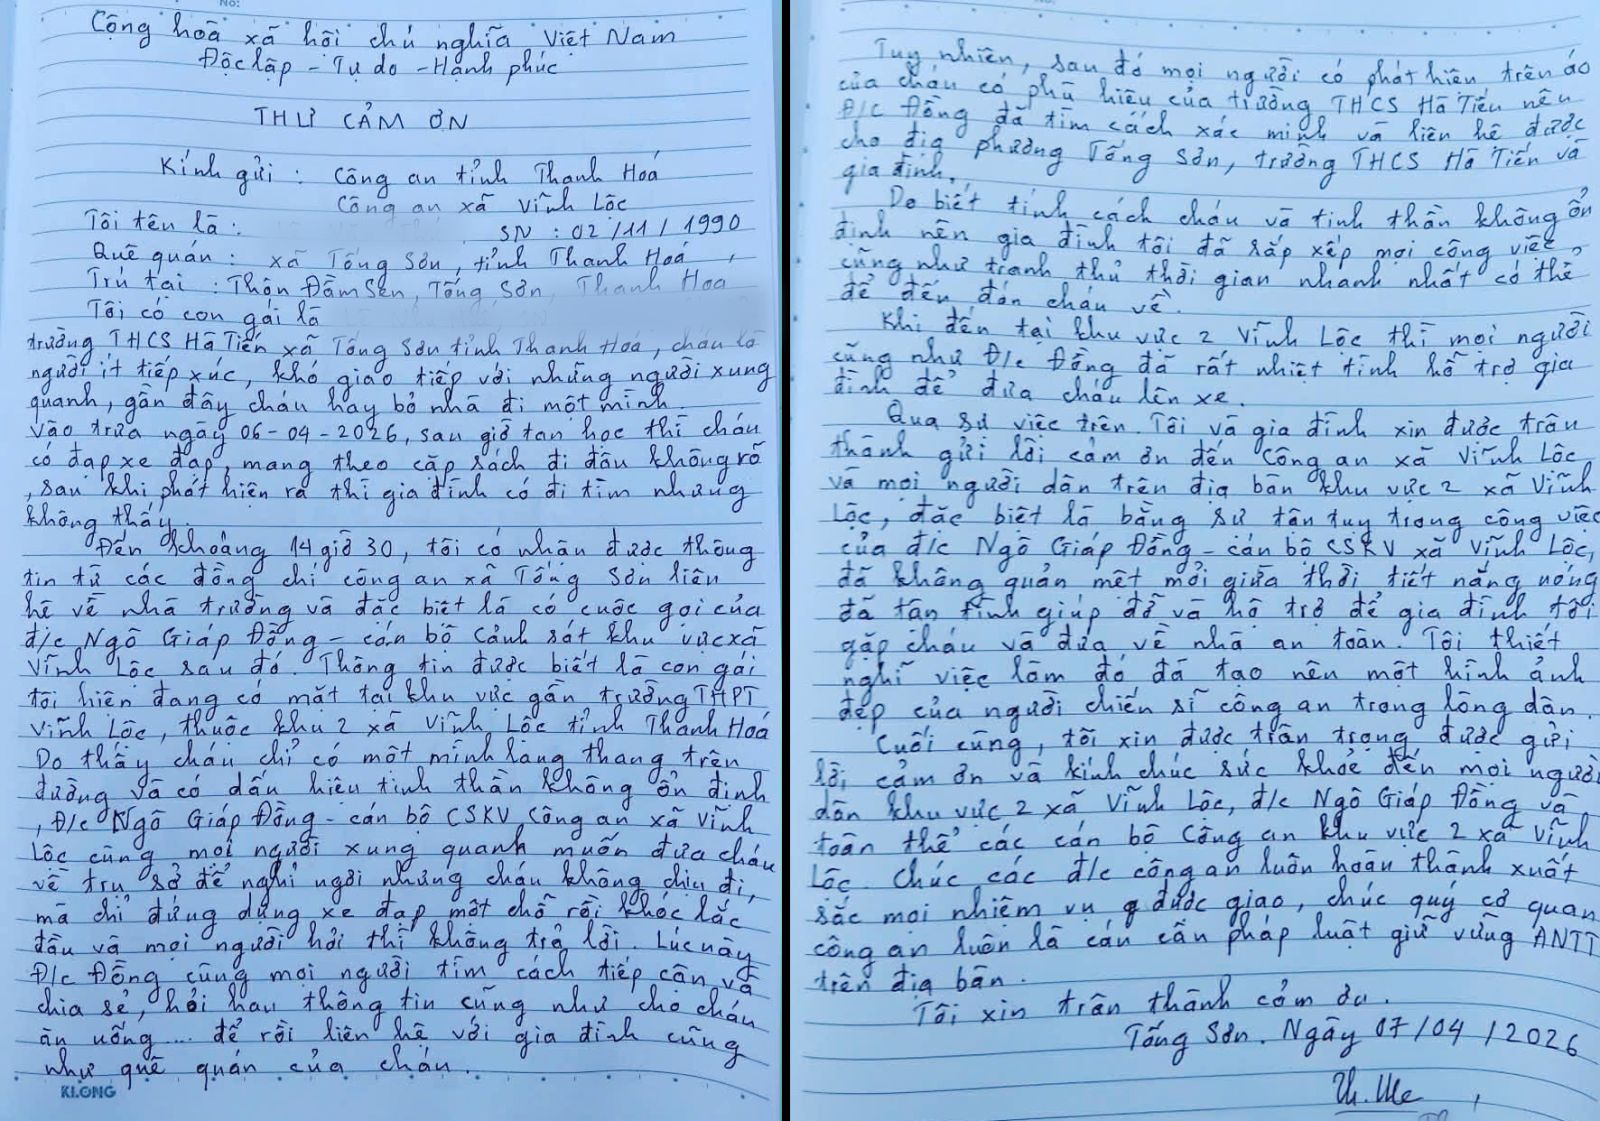 Cộng hoà xã hội chủ nghĩa Việt Nam
Độc lập - Tự do - Hạnh phúc
THƯ CẢM ƠN
Kính gửi : Công an tỉnh Thanh Hoá
Công an xã Vĩnh Lộc
Tôi tên là : SN : 02/11/1990
Quê quán : xã Tống Sơn, tỉnh Thanh Hoá,
Trú tại : Thôn Đầm Sen, Tống Sơn, Thanh Hoa
Tôi có con gái là
trường THCS Hà Tiến xã Tống Sơn tỉnh Thanh Hoá, cháu là
người ít tiếp xúc, khó giao tiếp với những người xung
quanh, gần đây cháu hay bỏ nhà đi một mình.
Vào trưa ngày 06-04-2026, sau giờ tan học thì cháu
có đạp xe đạp, mang theo cặp sách đi đâu không rõ
, sau khi phát hiện ra thì gia đình có đi tìm nhưng
không thấy.
Đến khoảng 14 giờ 30, tôi có nhận được thông
tin từ các đồng chí công an xã Tống Sơn liên
hệ về nhà trường và đặc biệt là có cuộc gọi của
đ/c Ngô Giáp Đồng - cán bộ Cảnh sát khu vực xã
Vĩnh Lộc sau đó. Thông tin được biết là con gái
tôi hiện đang có mặt tại khu vực gần trường THPT
Vĩnh Lộc, thuộc khu 2 xã Vĩnh Lộc tỉnh Thanh Hoá
Do thấy cháu chỉ có một mình lang thang trên
đường và có dấu hiệu tinh thần không ổn định
, Đ/c Ngô Giáp Đồng - cán bộ CSKV Công an xã Vĩnh
Lộc cùng mọi người xung quanh muốn đưa cháu
về trụ sở để nghỉ ngơi nhưng cháu không chịu đi,
mà chỉ đứng dựng xe đạp một chỗ rồi khóc lắc
đầu và mọi người hỏi thì không trả lời. Lúc này
Đ/c Đồng cùng mọi người tìm cách tiếp cận và
chia sẻ, hỏi han thông tin cũng như cho cháu
ăn uống ... để rồi liên hệ với gia đình cũng
như quê quán của cháu.
KLONG
Tuy nhiên, sau đó mọi người có phát hiện trên áo
của cháu có phù hiệu của trường THCS Hà Tiến nên
Đ/c Đồng đã tìm cách xác minh và liên hệ được
cho địa phương Tống Sơn, trường THCS Hà Tiến và
gia đình.
Do biết tính cách cháu và tinh thần không ổn
định nên gia đình tôi đã sắp xếp mọi công việc,
cũng như tranh thủ thời gian nhanh nhất có thể
để đến đón cháu về.
Khi đến tại khu vực 2 Vĩnh Lộc thì mọi người
cũng như Đ/c Đồng đã rất nhiệt tình hỗ trợ gia
đình để đưa cháu lên xe.
Qua sự việc trên. Tôi và gia đình xin được trân
thành gửi lời cảm ơn đến Công an xã Vĩnh Lộc
và mọi người dân trên địa bàn khu vực 2 xã Vĩnh
Lộc, đặc biệt là bằng sự tận tuỵ trong công việc
của đ/c Ngô Giáp Đồng - cán bộ CSKV xã Vĩnh Lộc,
đã không quản mệt mỏi giữa thời tiết nắng nóng
đã tận tình giúp đỡ và hỗ trợ để gia đình tôi
gặp cháu và đưa về nhà an toàn. Tôi thiết
nghĩ việc làm đó đã tạo nên một hình ảnh
đẹp của người chiến sĩ công an trong lòng dân.
Cuối cùng, tôi xin được trân trọng được gửi
lời cảm ơn và kính chúc sức khoẻ đến mọi người
dân khu vực 2 xã Vĩnh Lộc, đ/c Ngô Giáp Đồng và
toàn thể các cán bộ Công an khu vực 2 xã Vĩnh
Lộc. Chúc các đ/c công an luôn hoàn thành xuất
sắc mọi nhiệm vụ được giao, chúc quý cơ quan
công an luôn là cán cân pháp luật giữ vững ANTT
trên địa bàn.
Tôi xin trân thành cảm ơn.
Tống Sơn. Ngày 07/04/2026